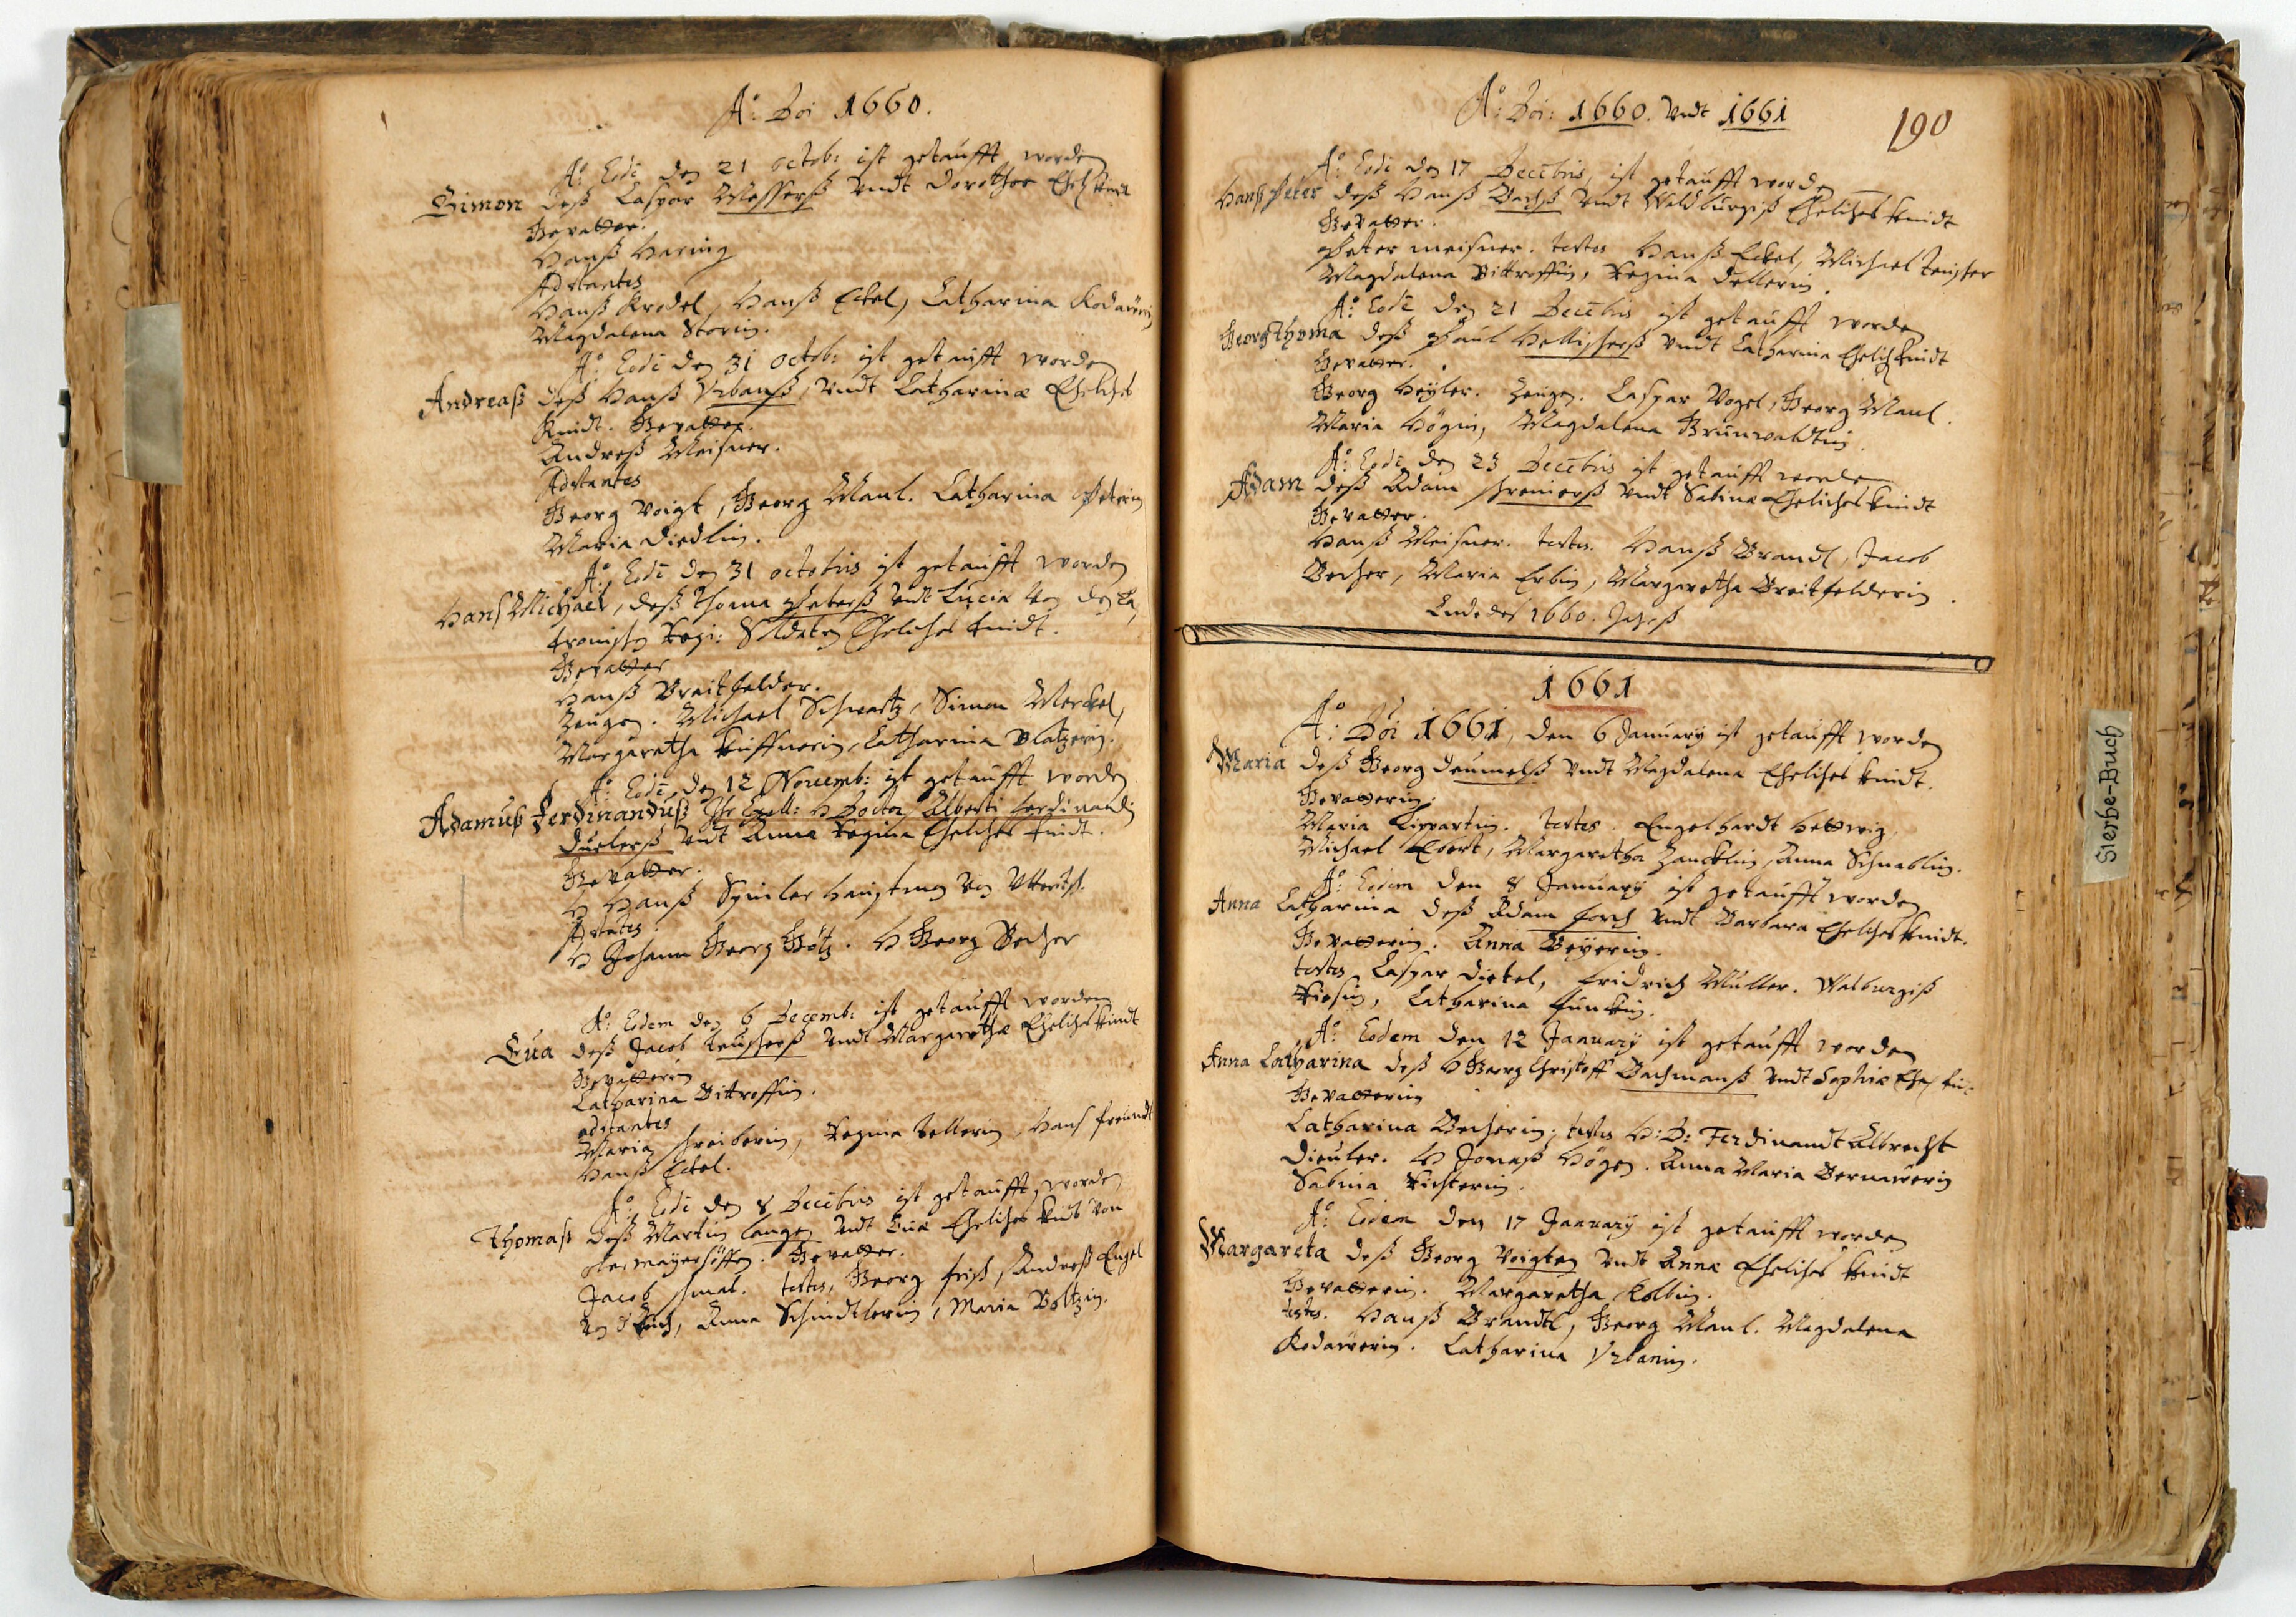 Aº: Dõi 1660.
Aº: Eodē den 21 octob: ist getaufft worden
Simon deß Caspar Messerß vndt Dorothee Ehel. kindt
Gevatter.
Hanß Haring
Adstantes
Hanß Krodel, Hanß Eckel, Catharina Kodawerin
Magdalena Storin.
Aº: Eodē den 31 octob: ist getaufft worden
Andreaß deß Hanß Vrbanß, vndt Catharinæ Eheliches
Kindt. Gevatter.
Andreß Meisner.
Adstantes
Georg Voigt, Georg Maul. Catharina Peterin
Maria Diedlin.
Aº: Eodē den 31 octobris ist getaufft worden
Hanß Michael, deß Thoma Peterß vndt Lucia von den
Regi: Soldaten Eheliches kindt.
Gevatter
Hanß Breitfelder.
Zeugen. Michael Schwartz, Simon Merckel,
Margaretha Küffnerin, Catharina Platzerin.
Aº: Eodē, den 12 Novemb: ist getaufft worden
Adamuß Ferdinanduß Ihr Excell: H Doctor Alberti Ferdinandi
Duelerß vndt Anna Regina Eheliches kindt.
Gevatter.
H Hanß Spinler Hauptman von
Adstātes:
H Johann Georg Götz. H Georg Becher
Aº: Eodem den 6 Decemb: ist getaufft worden
Eua deß Jacob Teuscherß vndt Margarethæ Eheliches kindt
Gevatterin
Catharina Dittroffin.
adstantes
Maria Schreiberin, Regina Tellerin, Hanß Freundt
Hanß Eckel.
Aº: Eodē den 8 Decēbris ist getaufft worden
Thomaß deß Martin Langen vndt Euæ Eheliches kindt von
Gevatter.
Jacob testes, Georg Frisch, Andreß Engel
Anna Schindtlerin, Maria Voltzin.
Aº: Dõi: 1660. vndt 1661
190
Aº: Eodē den 17 Decēbris, ist getaufft worden
Hanß Peter deß Hanß Bachß vndt Waldburgiß Eheliches kindt
Gevatter.
Peter meisner. testes Hanß Eckel, Michael Teuscher
Magdalena Dittroffin, Regina Dellerin.
Aº: Eodē den 21 Decēbris ist getaufft worden
Georg Thoma deß Paul Hellischerß vndt Catharina Ehelich kindt
Gevatter.
Georg Heyler. Zeugen. Caspar Vogel, Georg Maul.
Maria Högin, Magdalena Brunwaldtin.
Aº: Eodē den 23 Decēbris ist getaufft worden
Adam deß Adam Schreinerß vndt Sabinæ Eheliches kindt
Gevatter.
Hanß Meisner. testes. Hanß Brandl, Jacob
Becher, Maria Erbin, Margaretha Breitfelderin.
Ende des 1660. Jahrß
1661
Aº: Dõi 1661, den 6 January ist getaufft worden
Maria deß Georg Deumelß vndt Magdalena Eheliches kindt.
Gevatterin:
Maria Lippartin. testes. Engelhardt Hettwig,
Michael Evert, Margaretha Zancklin, Anna Schnablin.
Aº: Eodem den 8 January ist getaufft worden
Anna Catharina deß Adam Forch vndt Barbara Eheliches kindt.
Gevatterin. Anna Beyerin.
testes Caspar Dietel, Fridrich Müller. Walburgiß
Riesin, Catharina Funckin.
Aº: Eodem den 12 January ist getaufft worden
Anna Catharina deß H Georg Christoff Bachmanß vndt Sophiæ Ehel. kin:
Gevatterin
Catharina Becherin; testes H: D: Ferdinandt Albrecht
Dieuler. H Jonaß Högen. Anna Maria Bernawerin
Sabina Richterin.
Aº: Eodem den 17 January ist getaufft worden
Margareta deß Georg Voigten vndt Annæ Eheliches kindt
Gevatterin. Margaretha Kolbin.
testes. Hanß Brandtl, Georg Maul. Magdalena
Kodawerin. Catharina Vrbanin.
Sterbe-Buch